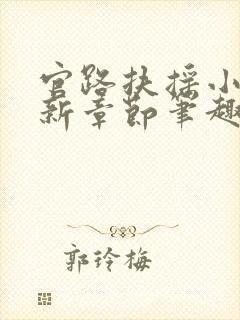 官路扶摇小
新章节笔趣
郭玲梅